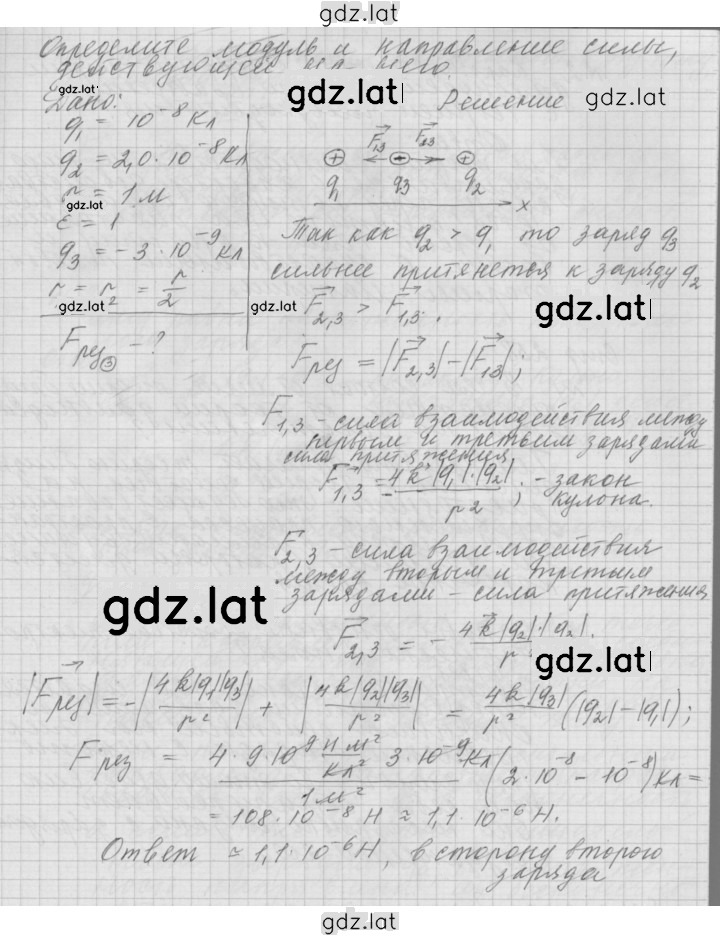 gdz.lat
Определите модуль и направление силы,
действующей на него.
Дано: gdz.lat Решение gdz.lat
gdz.lat
q₁ = 10⁻⁸ Кл
q₂ = 2,0·10⁻⁸ Кл
r = 1 м
gdz.lat
ε = 1
q₃ = -3·10⁻⁹ Кл
r = r₂ = r/2
gdz.lat
Fрез③ - ?
F₁₃ F₂₃
q₁ q₃ q₂
x
Так как q₂ > q₁ то заряд q₃
сильнее притянется к заряду q₂
gdz.lat F₂,₃ > F₁,₃. gdz.lat
Fрез = |F₂,₃| - |F₁₃|;
F₁,₃ - сила взаимодействия между
первым и третьим зарядами
сила притяжения
F₁,₃ = 4k|q₁|·|q₂| / r²; - закон
кулона.
F₂,₃ - сила взаимодействия
между вторым и третьим
gdz.lat
зарядами - сила притяжения
F₂,₃ = - 4k|q₂|·|q₂| / r².
gdz.lat
|Fрез| = -|4k|q₁||q₃| / r²| + |4k|q₂||q₃| / r²| = 4k|q₃| / r² (|q₂| - |q₁|);
Fрез = 4·9·10⁹ Н м²/Кл² 3·10⁻⁹ Кл / 1 м² (2·10⁻⁸ - 10⁻⁸) Кл =
= 108·10⁻⁸ Н ≈ 1,1·10⁻⁶ Н.
Ответ ≈ 1,1·10⁻⁶ Н, в сторону второго
заряда
gdz.lat